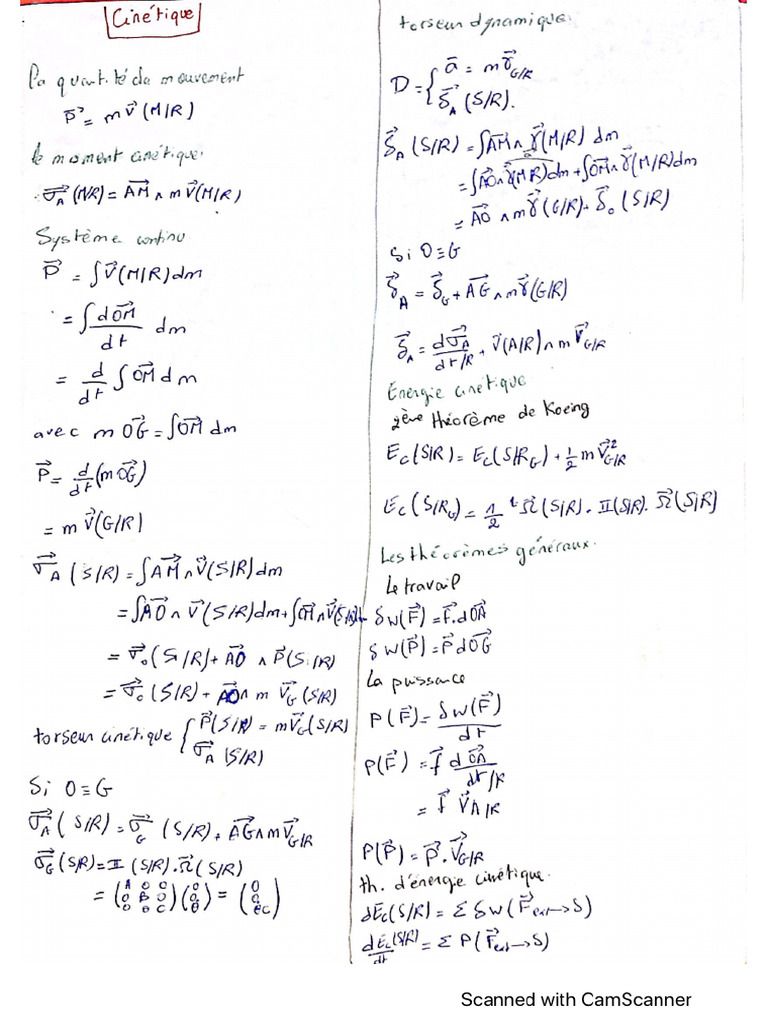 Cinétique
La quantité de mouvement
P⃗ = m V⃗ (M/R)
le moment cinétique.
σ⃗_A (M/R) = AM⃗ ∧ m V⃗(M/R)
Système continu
P⃗ = ∫ V⃗(M/R) dm
= ∫ dOM⃗/dt dm
= d/dt ∫ OM⃗ dm
avec m OG⃗ = ∫ OM⃗ dm
P⃗ = d/dt (m OG⃗)
= m V⃗(G/R)
σ⃗_A (S/R) = ∫ AM⃗ ∧ V⃗(S/R) dm
= ∫ AO⃗ ∧ V⃗ (S/R) dm + ∫ OM⃗ ∧ V⃗(S/R)
= σ⃗_0 (S/R) + AO⃗ ∧ P⃗(S/R)
= σ⃗_0 (S/R) + AO⃗ ∧ m V⃗_G (S/R)
torseur cinétique { P⃗(S/R) = m V⃗_G (S/R)
σ⃗_A (S/R)
Si O ≡ G
σ⃗_A (S/R) = σ⃗_G (S/R) + AG⃗ ∧ m V⃗_G/R
σ⃗_G (S/R) = II (S/R) . Ω⃗ (S/R)
= (A 0 0 / 0 B 0 / 0 0 C) (0 / 0 / θ) = (0 / 0 / θC)
torseur dynamique.
D = { a⃗ = m γ⃗_G/R
δ⃗_A (S/R).
δ⃗_A (S/R) = ∫ AM⃗ ∧ γ⃗(M/R) dm
= ∫ AO⃗ ∧ γ⃗(M/R) dm + ∫ OM⃗ ∧ γ⃗(M/R) dm
= AO⃗ ∧ m γ⃗ (G/R) + δ⃗_0 (S/R)
Si O ≡ G
δ⃗_A = δ⃗_G + AG⃗ ∧ m γ⃗ (G/R)
δ⃗_A = dσ⃗_A/dt/R + V⃗(A/R) ∧ m V⃗_G/R
Energie cinétique
2ème théorème de Koeing
Ec (S/R) = Ec (S/R_G) + 1/2 m V⃗²_G/R
Ec (S/R_G) = 1/2 ᵗΩ⃗ (S/R) . II (S/R) . Ω⃗ (S/R)
Les théorèmes généraux.
Le travail
δW(F⃗) = f⃗ . dOA⃗
δW(P⃗) = P⃗ dOG⃗
la puissance
P(F⃗) = δW(F⃗)/dt
P(F⃗) = f⃗ dOA⃗/dt/R
= f⃗ V⃗_A/R
P(P⃗) = P⃗ . V⃗_G/R
th. d'énergie cinétique.
dEc (S/R) = Σ δW (F⃗ext→S)
dEc (S/R)/dt = Σ P (F⃗ext→S)
Scanned with CamScanner